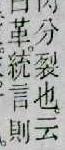 分裂也云
革統言則